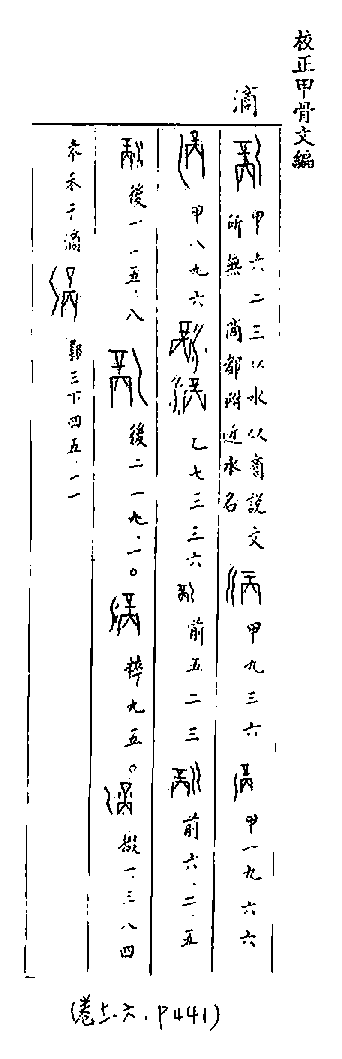 校正甲骨文編
滴
甲六二三 以水以商說文
所無 商都附近水名
甲九三六 甲一九六六
甲八九六 乙七三三六 前五二三 前六.二.五
後一.一五.八 後二一九.一〇 粹九五〇 掇一.三八四
桒禾于滴 鄴三下四五.一一
(卷 .六.P441)